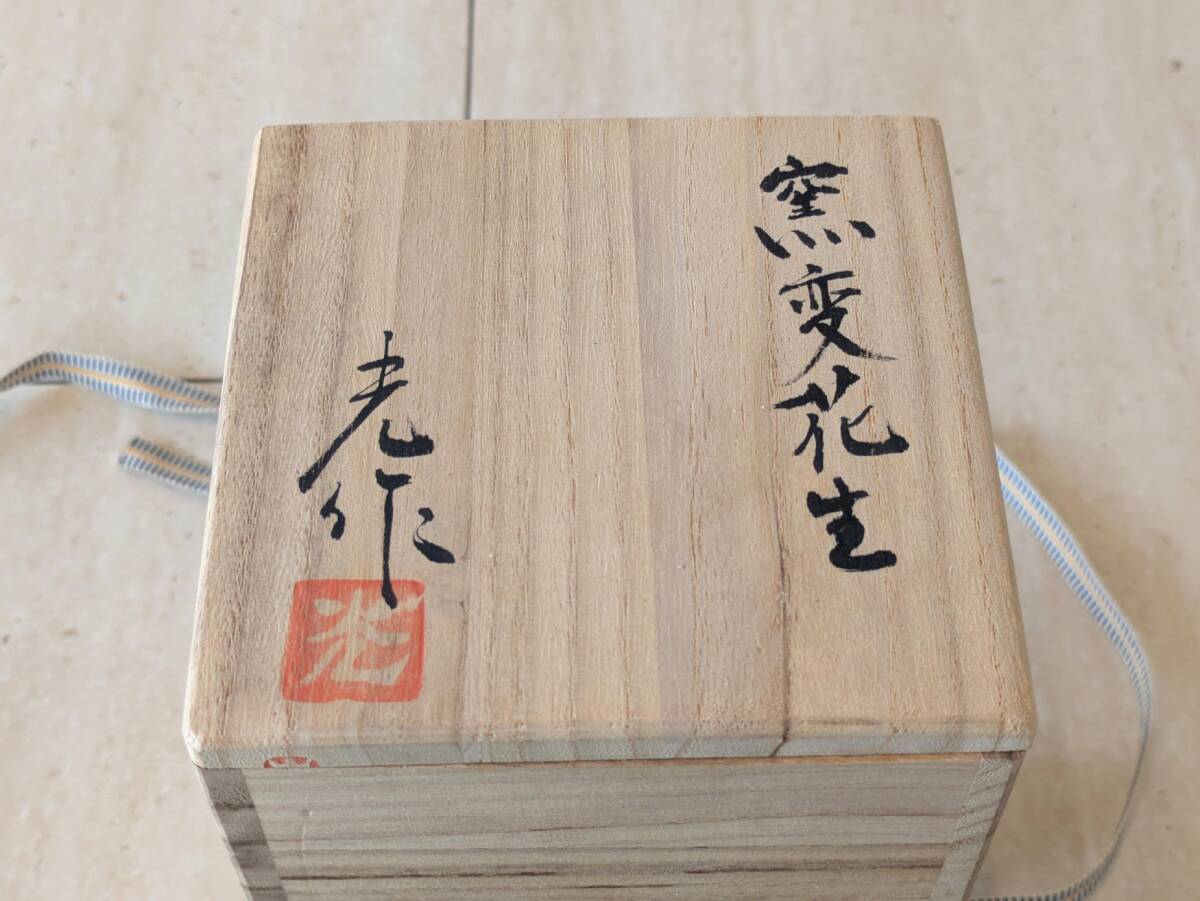 窯変花生
光作
光